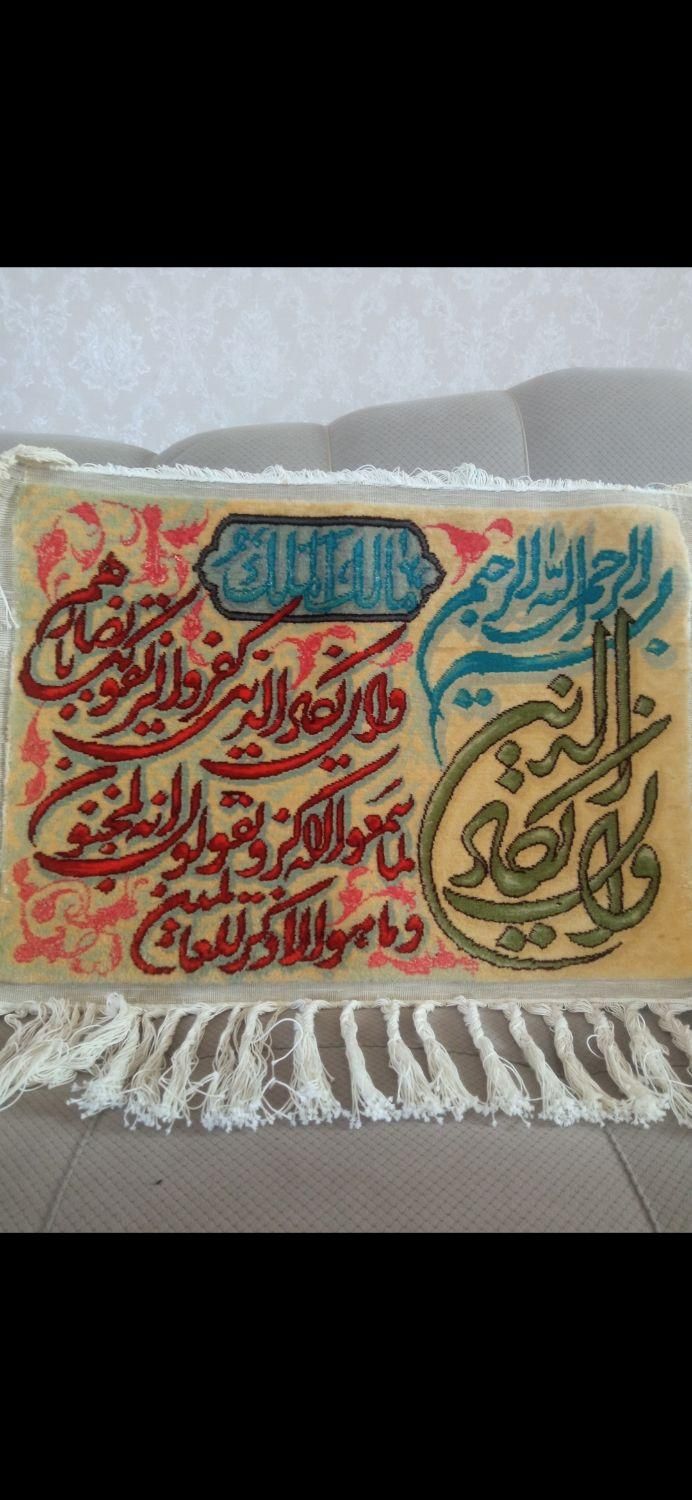 بسم الله الرحمن الرحیم
وان یکاد الذین
مالک الملک
وان یکاد الذین کفروا لیزلقونک بابصارهم
لما سمعوا الذکر و یقولون انه لمجنون
وما هو الا ذکر للعالمین